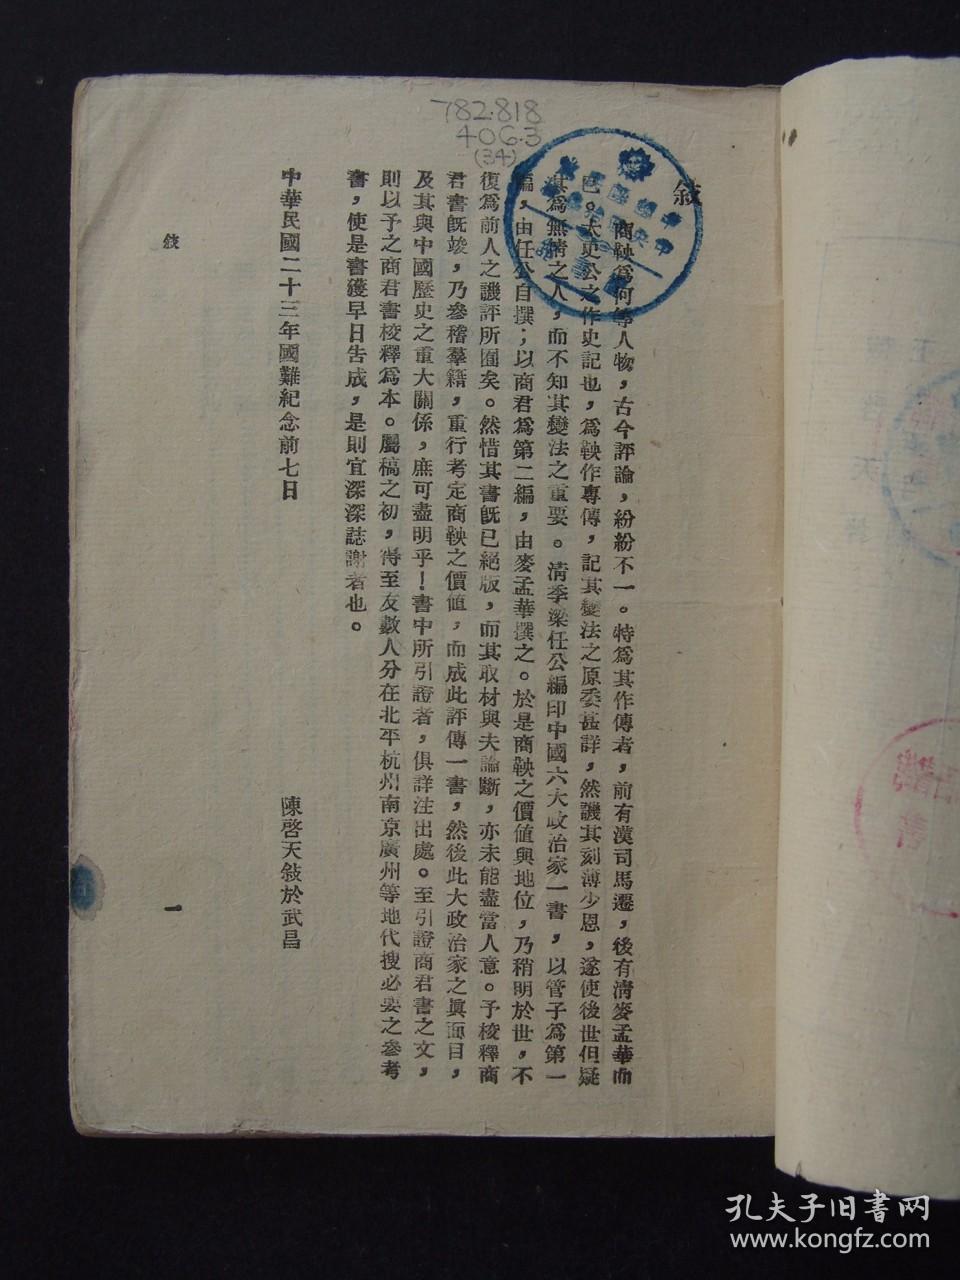 782.818
406.3
(34)
敍
商鞅爲何等人物，古今評論，紛紛不一。特爲其作傳者，前有漢司馬遷，後有淸麥孟華而
已。太史公之作史記也，爲鞅作專傳，記其變法之原委甚詳，然譏其刻薄少恩，遂使後世但疑
其爲無情之人，而不知其變法之重要。淸季梁任公編印中國六大政治家一書，以管子爲第一
編，由任公自撰；以商君爲第二編，由麥孟華撰之。於是商鞅之價値與地位，乃稍明於世，不
復爲前人之譏評所囿矣。然惜其書旣已絕版，而其取材與夫論斷，亦未能盡當人意。予校釋商
君書旣竣，乃參稽羣籍，重行考定商鞅之價値，而成此評傳一書，然後此大政治家之眞面目，
及其與中國歷史之重大關係，庶可盡明乎！書中所引證者，俱詳注出處。至引證商君書之文，
則以予之商君書校釋爲本。屬稿之初，得至友數人分在北平杭州南京廣州等地代搜必要之參考
書，使是書獲早日告成，是則宜深深誌謝者也。
中華民國二十三年國難紀念前七日
陳啓天敍於武昌
敍
一
孔夫子旧书网
www.kongfz.com